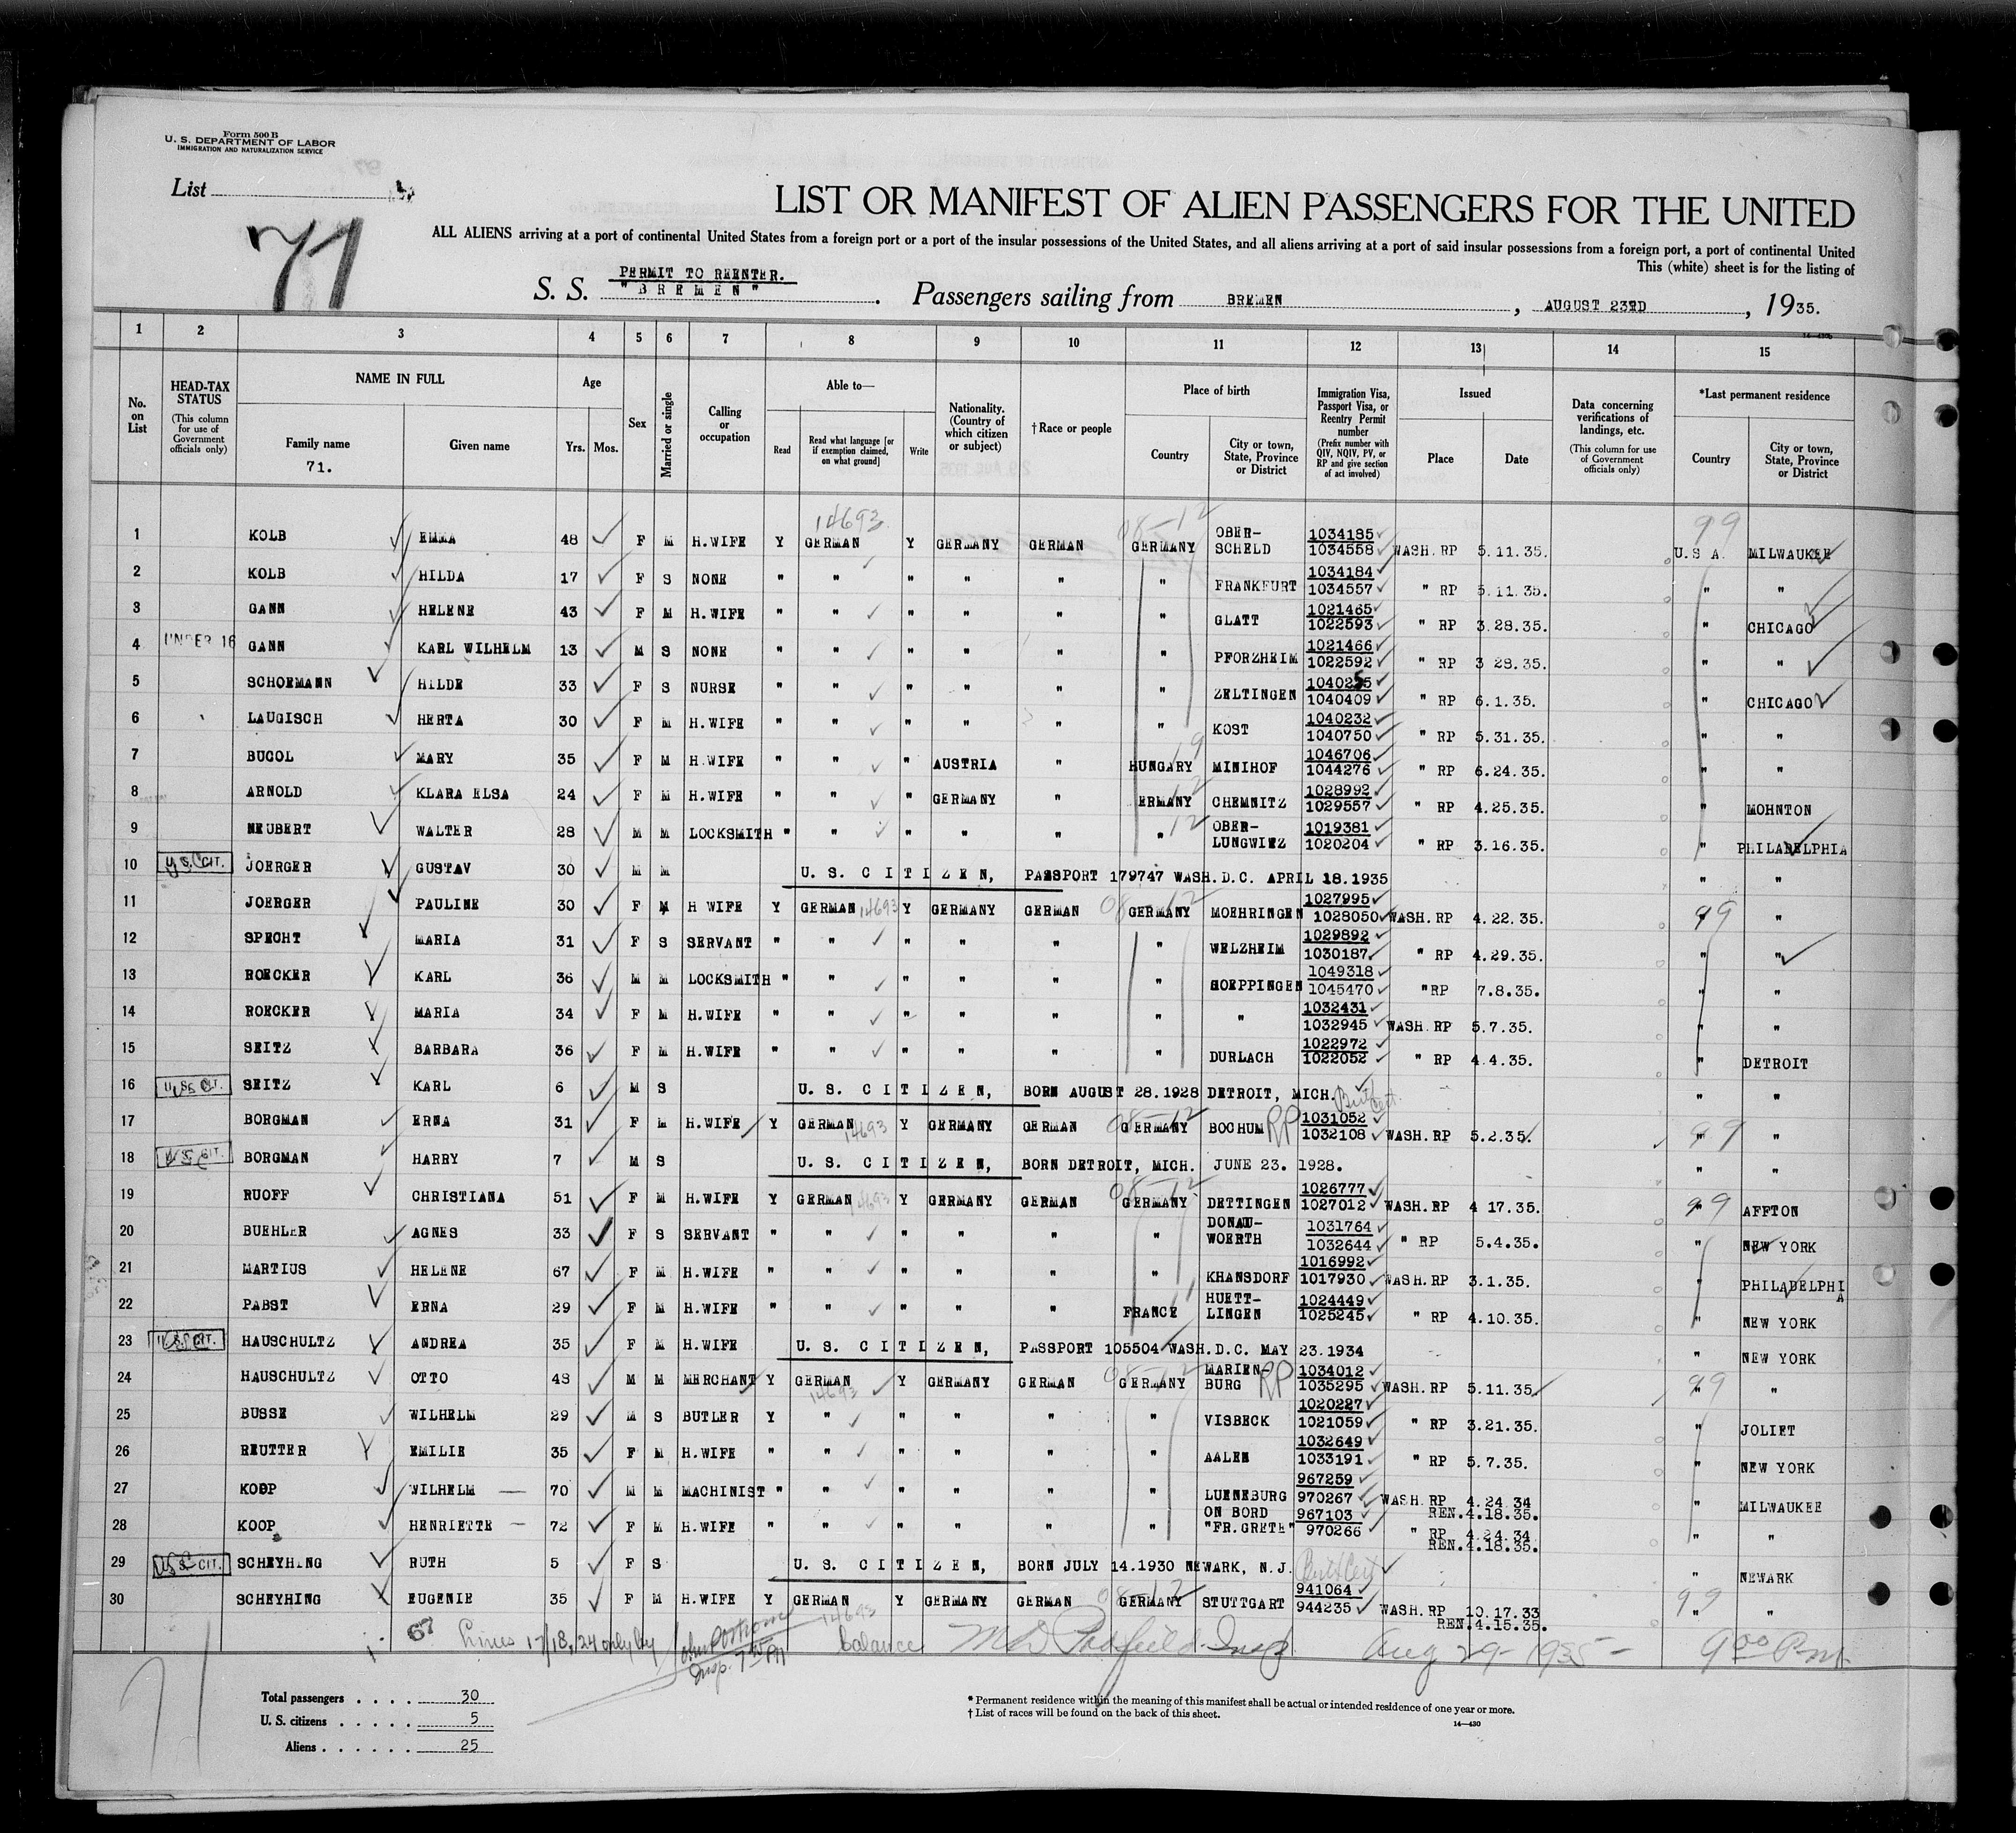 Form 500 B
U. S. DEPARTMENT OF LABOR
IMMIGRATION AND NATURALIZATION SERVICE
List
71
LIST OR MANIFEST OF ALIEN PASSENGERS FOR THE UNITED
ALL ALIENS arriving at a port of continental United States from a foreign port or a port of the insular possessions of the United States, and all aliens arriving at a port of said insular possessions from a foreign port, a port of continental United
This (white) sheet is for the listing of
PERMIT TO REENTER.
S. S. "BREMEN" . Passengers sailing from BREMEN , AUGUST 23RD , 1935.
1 2 3 4 5 6 7 8 9 10 11 12 13 14 15
No. on List
HEAD-TAX STATUS (This column for use of Government officials only)
NAME IN FULL
Family name 71.
Given name
Age Yrs. Mos.
Sex
Married or single
Calling or occupation
Able to—
Read
Read what language [or if exemption claimed, on what ground]
Write
Nationality. (Country of which citizen or subject)
†Race or people
Place of birth
Country
City or town, State, Province or District
Immigration Visa, Passport Visa, or Reentry Permit number (Prefix number with QIV, NQIV, PV, or RP and give section of act involved)
Issued
Place
Date
Data concerning verifications of landings, etc. (This column for use of Government officials only)
*Last permanent residence
Country
City or town, State, Province or District
14693 08-12 99
1 KOLB EMMA 48 F M H.WIFE Y GERMAN Y GERMANY GERMAN GERMANY OBER-SCHELD 1034185 1034558 WASH. RP 5.11.35. U.S A. MILWAUKEE
2 KOLB HILDA 17 F S NONE " " " " " " FRANKFURT 1034184 1034557 " RP 5.11.35. " "
3 GANN HELENE 43 F M H.WIFE " " " " " " GLATT 1021465 1022593 " RP 3.28.35. " CHICAGO
4 UNDER 16 GANN KARL WILHELM 13 M S NONE " " " " " " PFORZHEIM 1021466 1022592 " RP 3 28.35. " "
5 SCHOEMANN HILDE 33 F S NURSE " " " " " " ZELTINGEN 1040255 1040409 " RP 6.1.35. " CHICAGO
6 LAUGISCH HERTA 30 F M H.WIFE " " " " " " KOST 1040232 1040750 " RP 5.31.35. " "
7 BUCOL MARY 35 F M H.WIFE " " " AUSTRIA " HUNGARY MINIHOF 1046706 1044276 " RP 6.24.35. " "
8 ARNOLD KLARA ELSA 24 F M H.WIFE " " " GERMANY " ERMANY CHEMNITZ 1028992 1029557 " RP 4.25.35. " MOHNTON
9 NEUBERT WALTER 28 M M LOCKSMITH " " " " " " 12 OBER-LUNGWITZ 1019381 1020204 " RP 3.16.35. " PHILADELPHIA
10 U.S. CIT. JOERGER GUSTAV 30 M M U. S. CITIZEN, PASSPORT 179747 WASH.D.C. APRIL 18.1935 " "
11 JOERGER PAULINE 30 F M H WIFE Y GERMAN 14693 Y GERMANY GERMAN 08-12 GERMANY MOEHRINGEN 1027995 1028050 WASH. RP 4.22.35. 99 " "
12 SPECHT MARIA 31 F S SERVANT " " " " " " WELZHEIM 1029892 1030187 " RP 4.29.35. " "
13 ROECKER KARL 36 M M LOCKSMITH " " " " " " GOEPPINGEN 1049318 1045470 "RP 7.8.35. " "
14 ROECKER MARIA 34 F M H.WIFE " " " " " " " 1032431 1032945 WASH.RP 5.7.35. " "
15 SEITZ BARBARA 36 F M H.WIFE " " " " " " DURLACH 1022972 1022052 " RP 4.4.35. " DETROIT
16 U.S. CIT. SEITZ KARL 6 M S U. S. CITIZEN, BORN AUGUST 28.1928 DETROIT, MICH. Birth Cert. " "
17 BORGMAN ERNA 31 F M H.WIFE Y GERMAN 14693 Y GERMANY GERMAN 08-12 GERMANY BOCHUM RP 1031052 1032108 WASH.RP 5.2.35. 99 " "
18 U.S. CIT. BORGMAN HARRY 7 M S U. S. CITIZEN, BORN DETROIT, MICH. JUNE 23. 1928. " "
19 RUOFF CHRISTIANA 51 F M H.WIFE Y GERMAN 14693 Y GERMANY GERMAN 08-12 GERMANY DETTINGEN 1026777 1027012 WASH.RP 4 17.35. 99 " AFFTON
20 BUEHLER AGNES 33 F S SERVANT " " " " " " DONAU-WOERTH 1031764 1032644 " RP 5.4.35. " NEW YORK
21 MARTIUS HELENE 67 F M H.WIFE " " " " " " KHANSDORF 1016992 1017930 WASH.RP 3.1.35. " PHILADELPHIA
22 PABST ERNA 29 F M H.WIFE " " " " " FRANCE HUETT-LINGEN 1024449 1025245 " RP 4.10.35. " NEW YORK
23 U.S. CIT. HAUSCHULTZ ANDREA 35 F M H.WIFE U. S. CITIZEN, PASSPORT 105504 WASH.D.C. MAY 23.1934 " NEW YORK
24 HAUSCHULTZ OTTO 48 M M MERCHANT Y GERMAN 14693 Y GERMANY GERMAN 08-12 GERMANY MARIEN-BURG RP 1034012 1035295 WASH.RP 5.11.35 99 " "
25 BUSSE WILHELM 29 M S BUTLER Y " " " " " VISBECK 1020227 1021059 " RP 3.21.35. " JOLIET
26 REUTTER EMILIE 35 F M H.WIFE " " " " " " AALEN 1032649 1033191 " RP 5.7.35. " NEW YORK
27 KOOP WILHELM — 70 M M MACHINIST " " " " " " LUENEBURG 967259 970267 WASH.RP 4.24 34 REN.4.18.35. " MILWAUKEE
28 KOOP HENRIETTE — 72 F M H.WIFE " " " " " " ON BORD "FR.GRETE" 967103 970266 " RP 4.24.34 REN.4.18.35. " "
29 U.S. CIT. SCHEYHING RUTH 5 F S U. S. CITIZEN, BORN JULY 14.1930 NEWARK, N.J. Birth Cert " NEWARK
30 SCHEYHING EUGENIE 35 F M H.WIFE Y GERMAN 14693 Y GERMANY GERMAN 08-12 GERMANY STUTTGART 941064 944235 WASH.RP 10.17.33 REN.4.15.35. 99 " "
67 Lines 17/18, 24 only by Insp. 7 30 PM balance Insp Aug 29-1935- 9 00 Pm.
71
Total passengers . . . . 30
U. S. citizens . . . . . 5
Aliens . . . . . . 25
* Permanent residence within the meaning of this manifest shall be actual or intended residence of one year or more.
† List of races will be found on the back of this sheet.
14—430